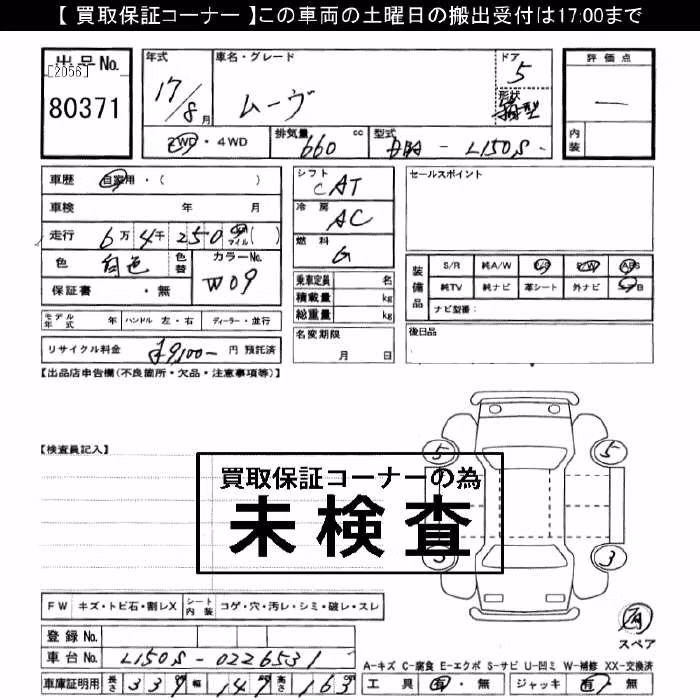 【 買取保証コーナー 】この車両の土曜日の搬出受付は17:00まで
出品No.
[2056]
80371
年式
17/8月
車名・グレード
ムーヴ
ドア
5
形状
箱型
評価点
—
内装
2WD・4WD
排気量
660 cc
型式
DBA - L150S
車歴 自家用・( )
車検 年 月
走行 6万4千250 マイル( )
色 白色
色替
カラーNo.
W09
保証書 ・無
シフト
CAT
冷房
AC
燃料
G
乗車定員 名
積載量 kg
総重量 kg
名変期限
月 日
セールスポイント
装備品
S/R 純A/W P/S P/W ABS
純TV 純ナビ 革シート 外ナビ B
ナビ型番:
後日品
モデル年式 年 ハンドル 左・右 ディーラー・並行
リサイクル料金 ¥9,100- 円 預託済
【出品店申告欄(不良箇所・欠品・注意事項等)】
【検査員記入】
買取保証コーナーの為
未検査
5
5
3
3
FW キズ・トビ石・割レX シート内装 コゲ・穴・汚レ・シミ・破レ・スレ
有
スペア
登録 No.
車台 No. L150S-0226531
A-キズ C-腐食 E-エクボ S-サビ U-凹ミ W-補修 XX-交換済
車庫証明用 長さ 339 幅 147 高さ 163
工具 有・無 ジャッキ 有・無